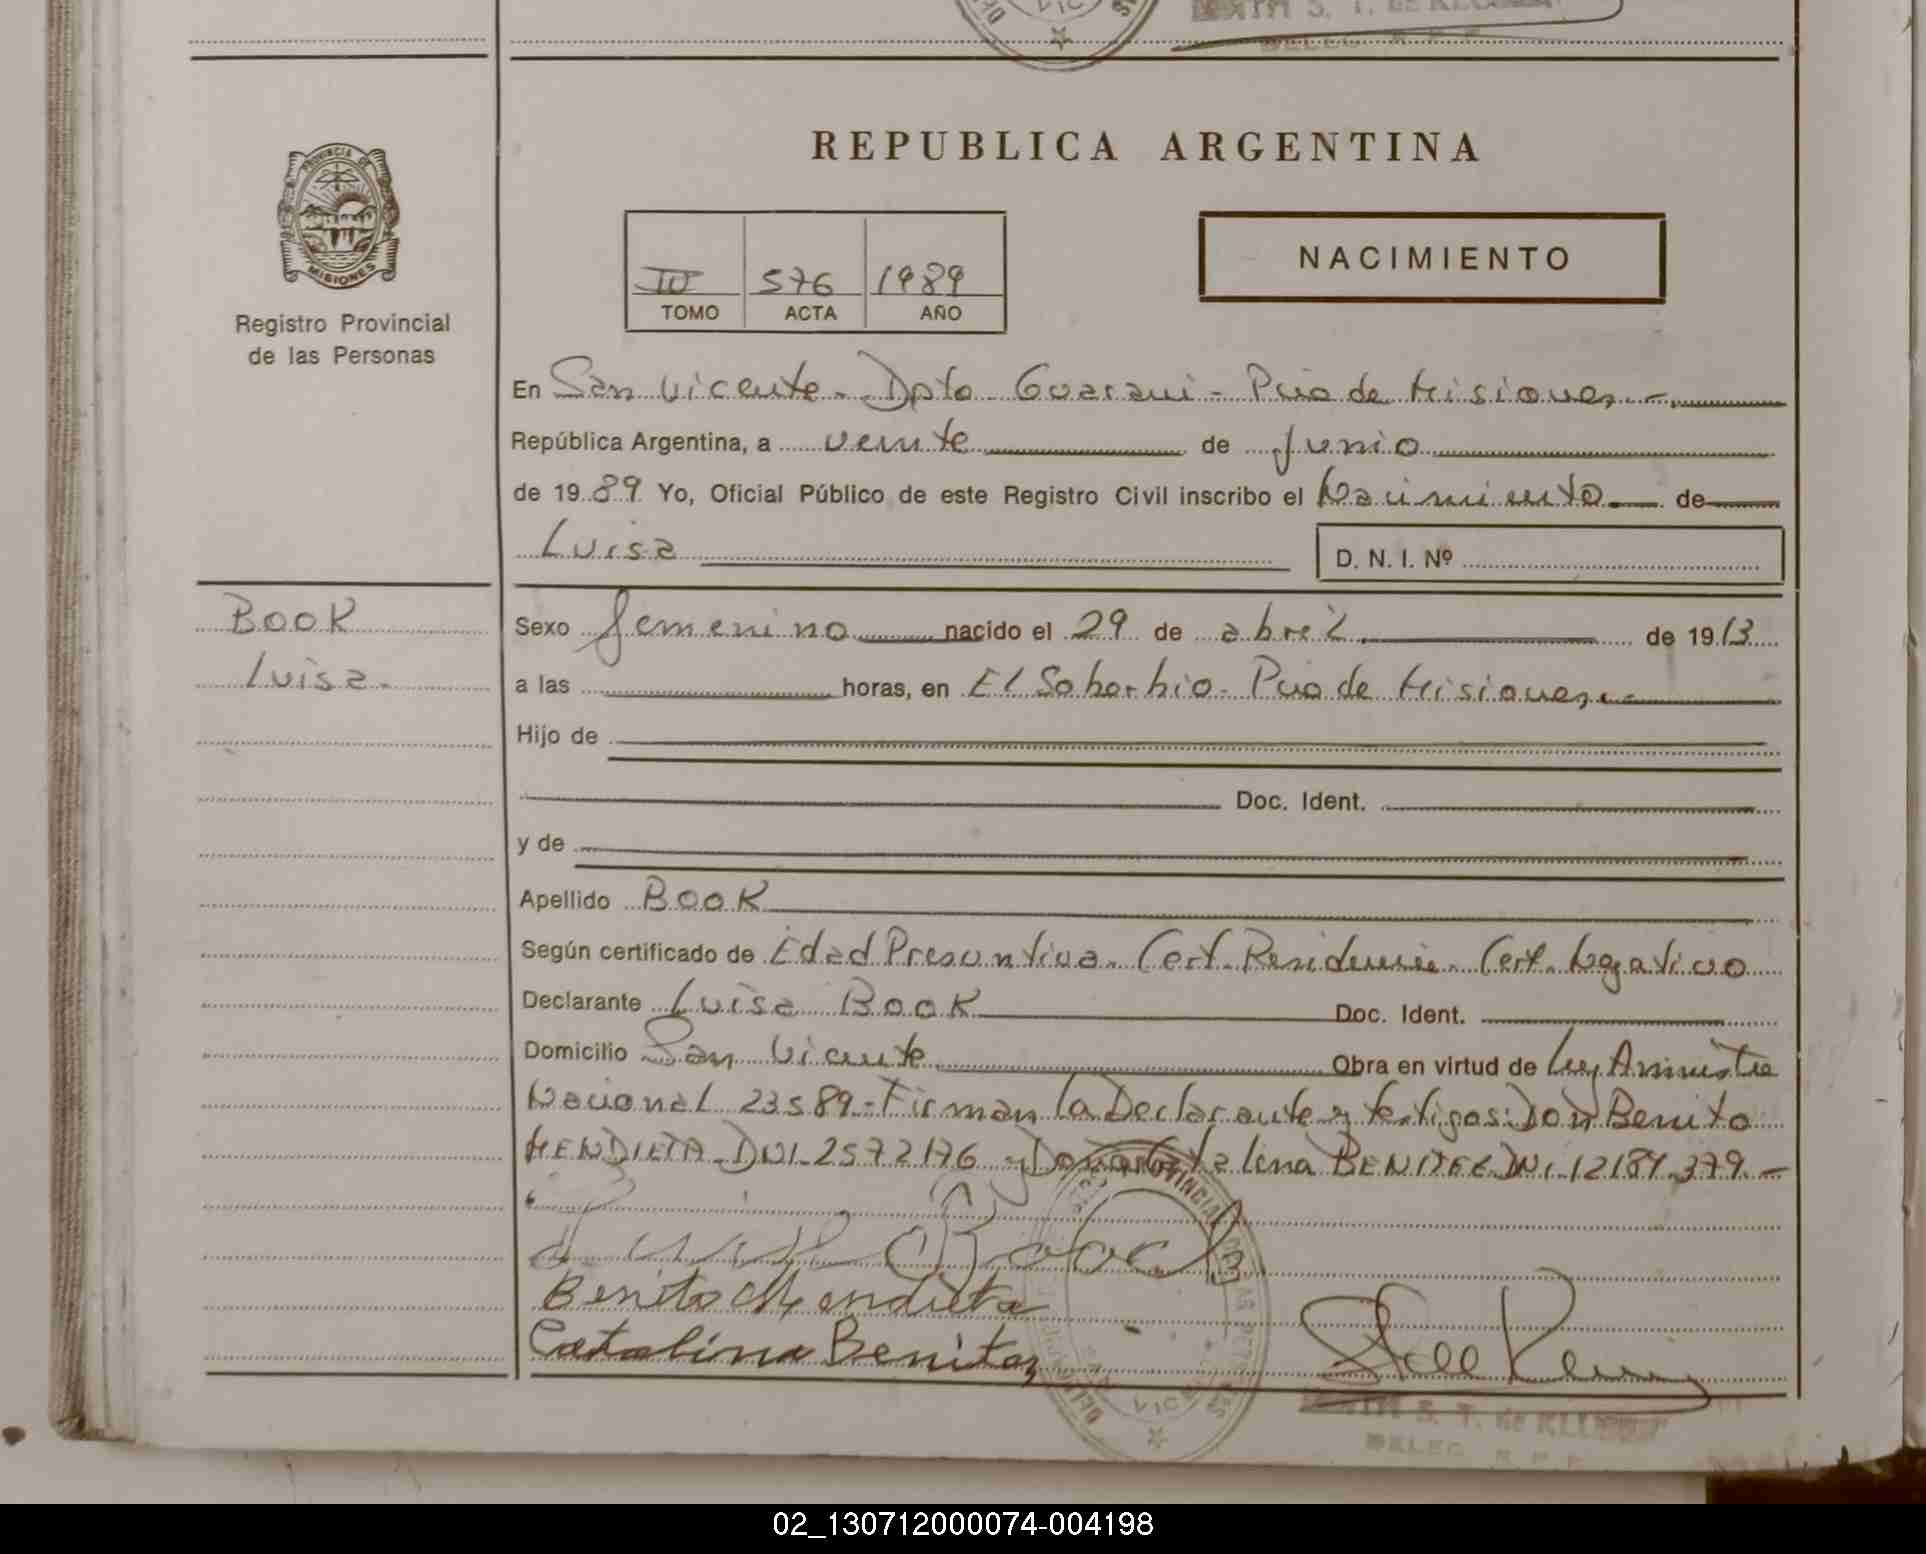 PROVINCIA DE
MISIONES
Registro Provincial
de las Personas
REPUBLICA ARGENTINA
IV 576 1989
TOMO ACTA AÑO
NACIMIENTO
En San Vicente - Dpto Guarani - Pcia de Misiones.-
República Argentina, a veinte de Junio
de 1989 Yo, Oficial Público de este Registro Civil inscribo el Nacimiento de
Luisa D. N. I. Nº
BOOK
Luisa.
Sexo femenino nacido el 29 de abril de 1913
a las horas, en El Soborbio - Pcia de Misiones.-
Hijo de
Doc. Ident.
y de
Apellido BOOK
Según certificado de Edad Presuntiva - Cert. Residencia - Cert. Negativo
Declarante Luisa BOOK Doc. Ident.
Domicilio San Vicente Obra en virtud de Ley Aminstia
Nacional 23589 - Firman la Declarante y testigos: Don Benito
MENDIETA - DNI 2572176 y Doña Catalina BENITEZ DNI 12187.379.-
Book
Benito Mendieta
Catalina Benitez
S. T. de
DELEG. R. P. P.
02_130712000074-004198